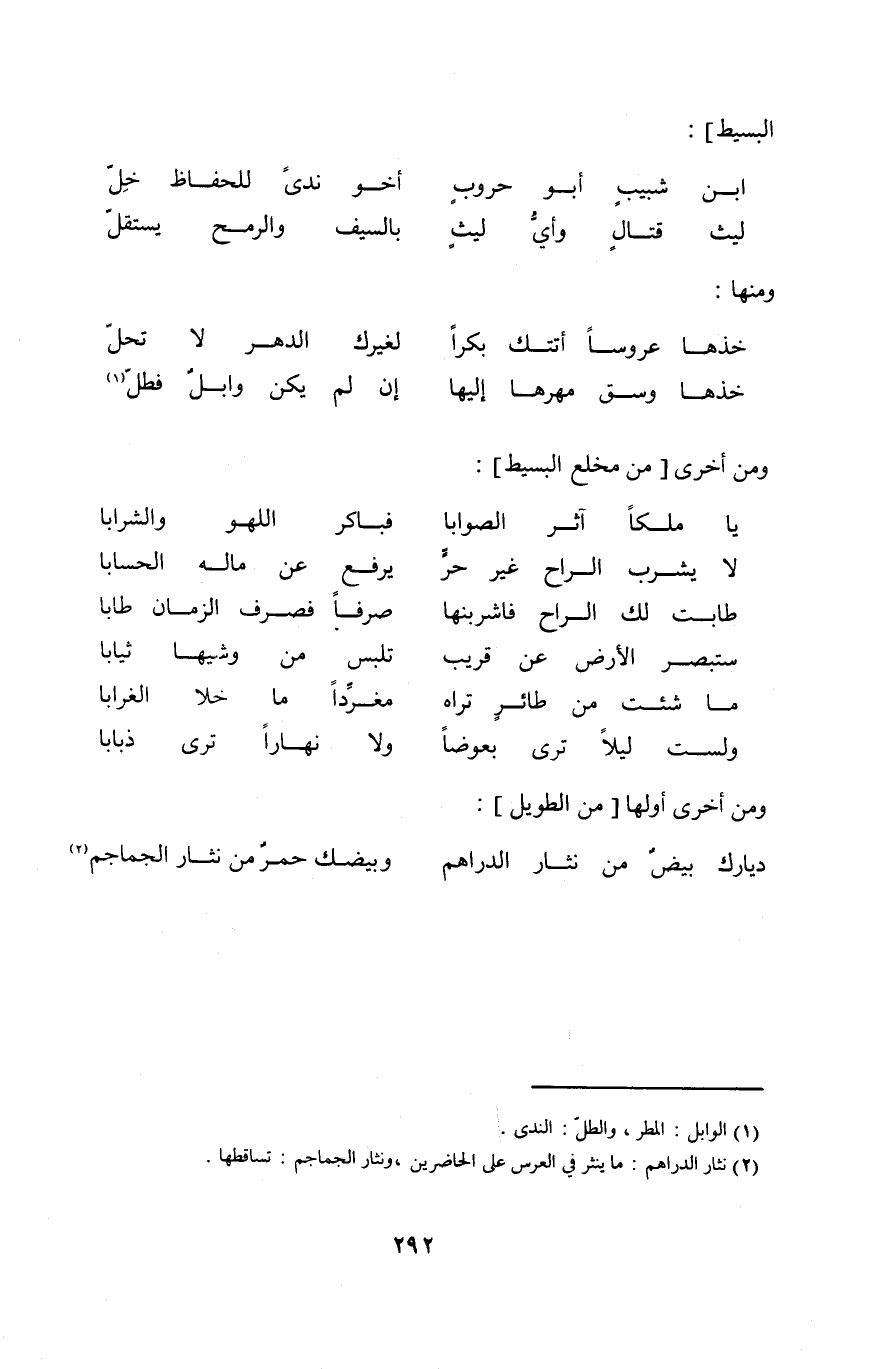 البسيط] :
ابن شبيبٍ أبو حروبٍ أخو ندىً للحفاظ خِلّ
ليث قتالٍ وأيُّ ليثٍ بالسيف والرمح يستقلّ
ومنها :
خذها عروساً أتتك بكراً لغيرك الدهر لا تحلّ
خذها وسق مهرها إليها إن لم يكن وابلٌ فطلّ(١)
ومن أخرى [ من مخلع البسيط] :
يا ملكاً آثر الصوابا فباكر اللهو والشرابا
لا يشرب الراح غير حرٍّ يرفع عن ماله الحسابا
طابت لك الراح فاشربنها صرفاً فصرف الزمان طابا
ستبصر الأرض عن قريب تلبس من وشيها ثيابا
ما شئت من طائرٍ تراه مغرِّداً ما خلا الغرابا
ولست ليلاً ترى بعوضاً ولا نهاراً ترى ذبابا
ومن أخرى أولها [ من الطويل ] :
ديارك بيضٌ من نثار الدراهم وبيضك حمرٌ من نثار الجماجم(٢)
(١) الوابل : المطر ، والطلّ : الندى .
(٢) نثار الدراهم : ما ينثر في العرس على الحاضرين ،ونثار الجماجم : تساقطها .
٢٩٢